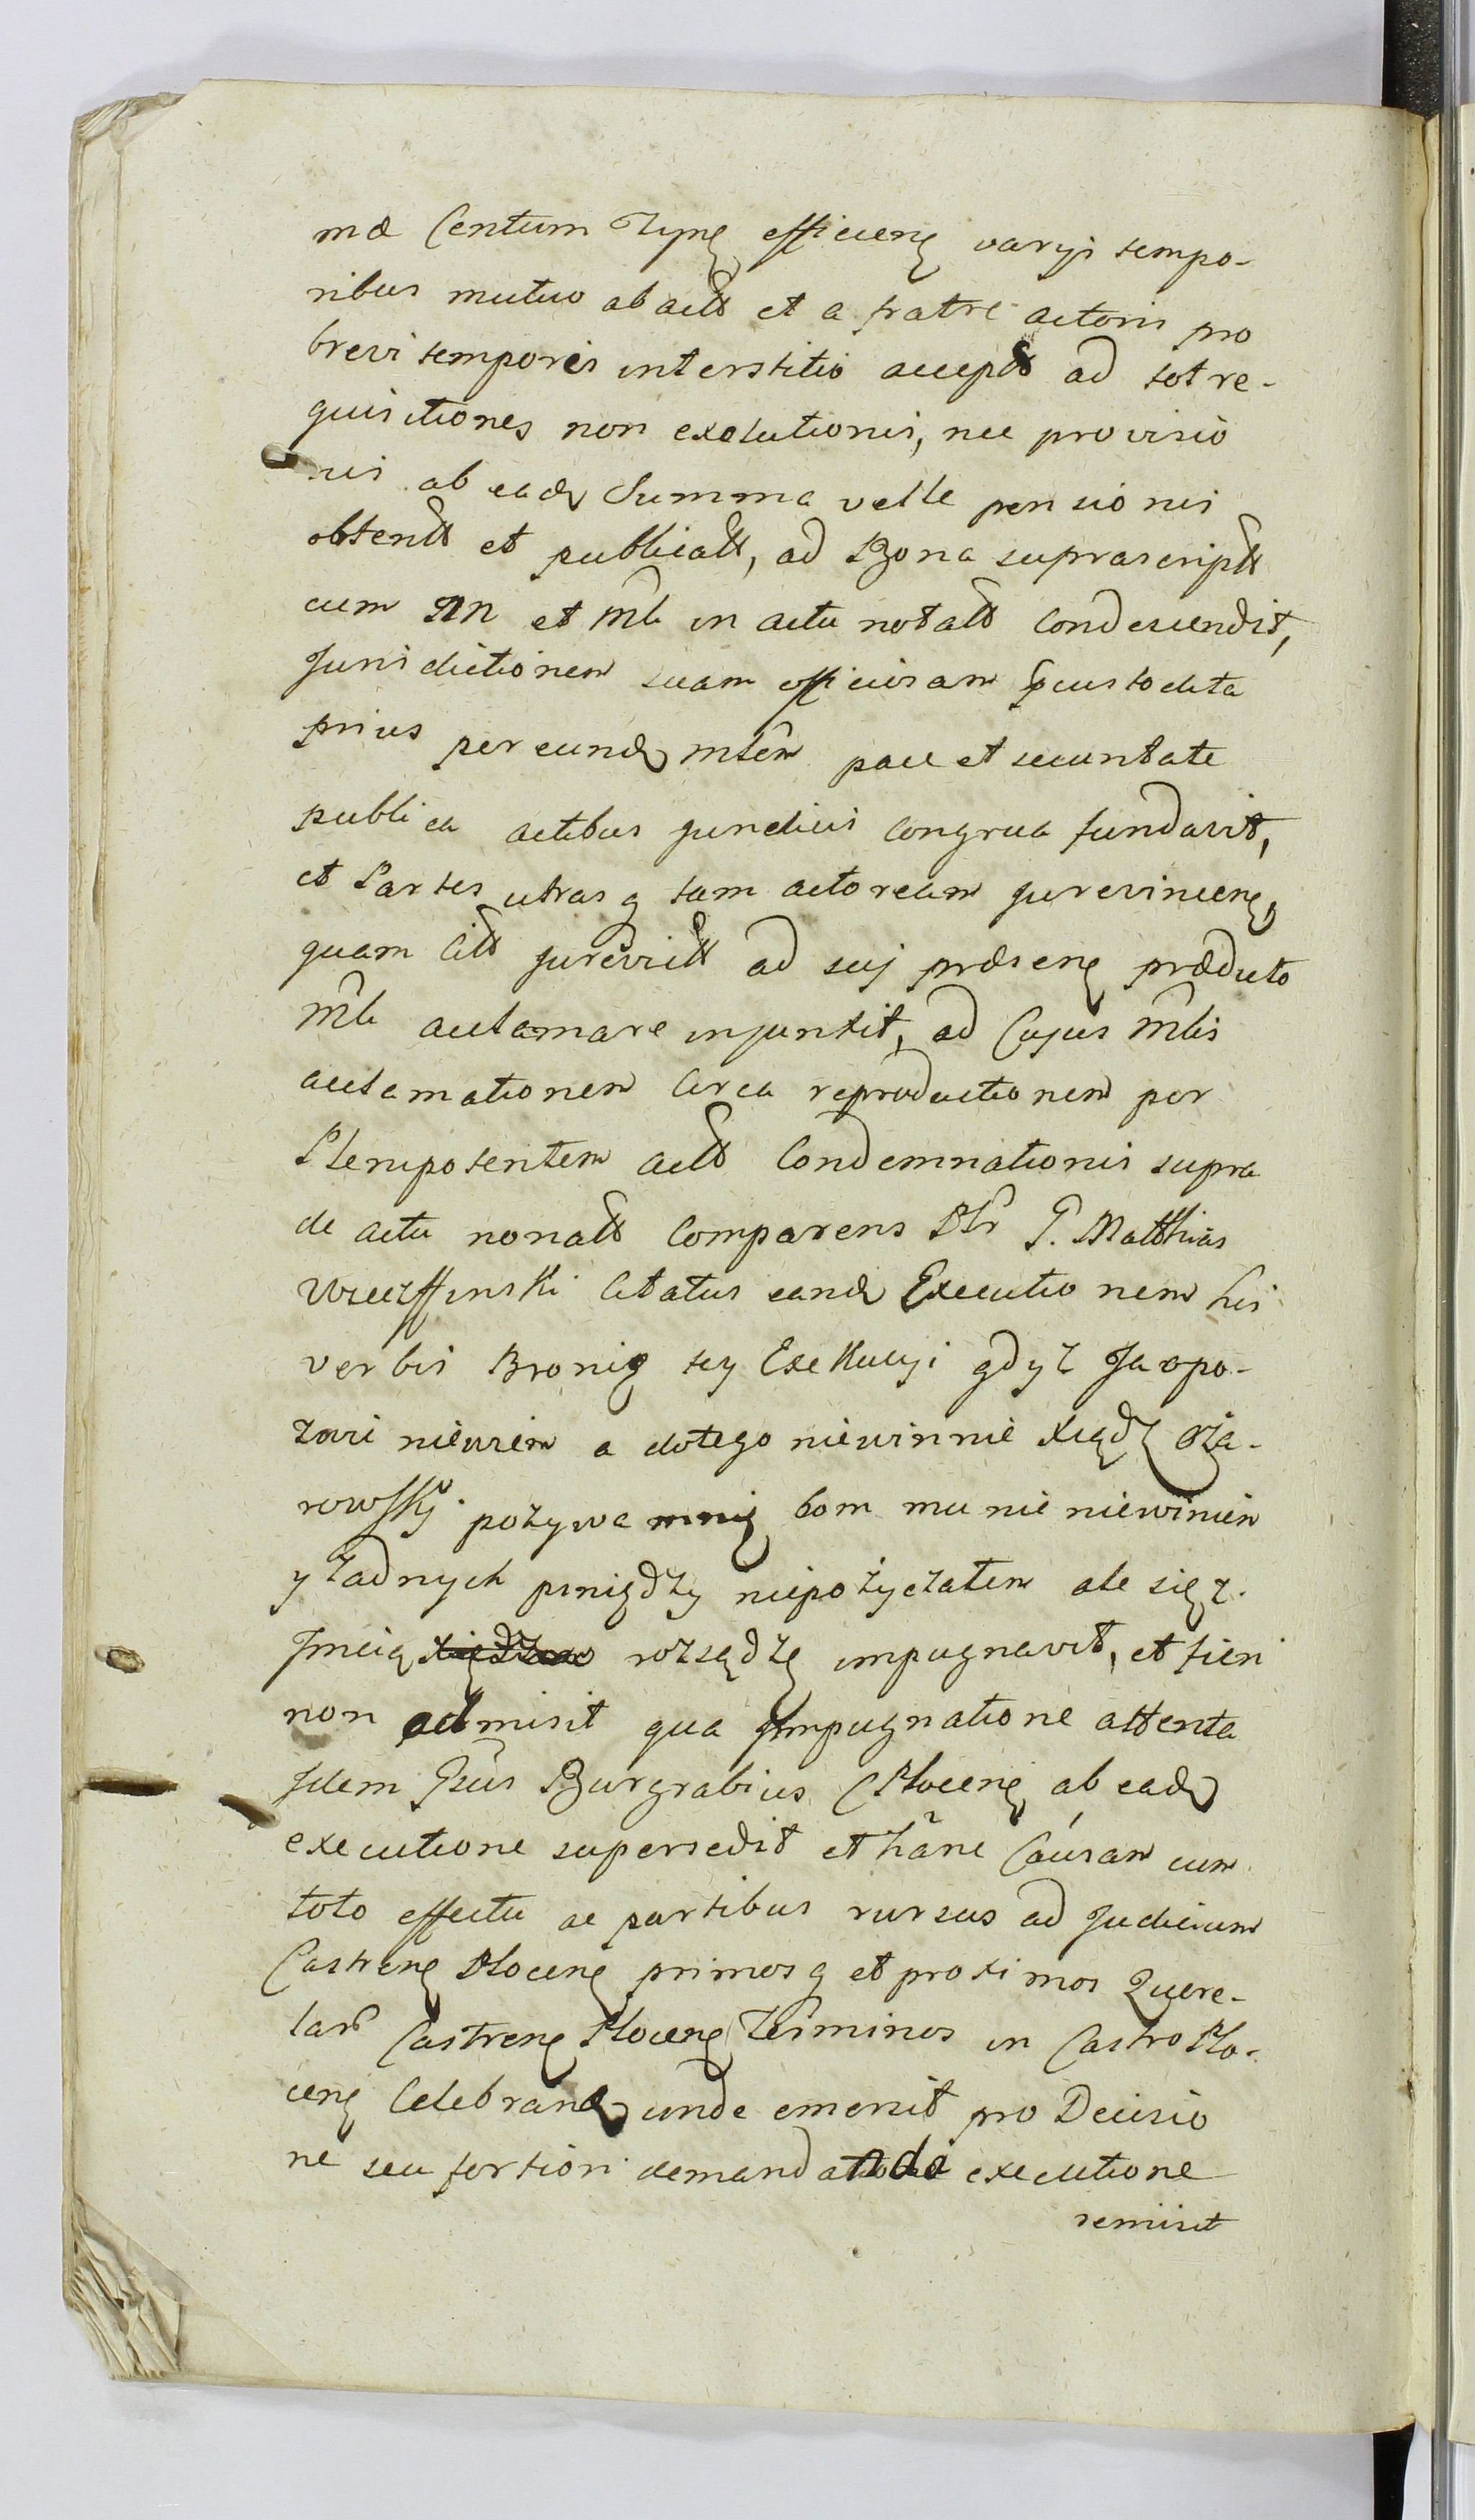 mæ Centum Tynę efficienę varys tempo-
ribus mutuo ab actt et a fratre actoris pro
brevi temporis interstitio accept ad tot re-
quisitiones non exolutionis, nec provisio
nis ab eadę Summa velle pensionis
obtentt et publicatt, ad Bona suprascriptt
cum NN et Mli in actu notatt Condescendit,
Jurisdictionem suam officiosam custodita
prius per eundę mlem pace et securitate
publica actibus juridicis congrua fundavit,
et Partes utrasq tam actoream jurevincenę,
quam Citt jurevictt ad sui præsenę præducto
Mli acclamare injunxit, ad Cujus Mlis
acclamationem Circa reproductionem per
Plenipotentem actt Condemnationis supra
de actu nonatt Comparens Mlr G. Matthias
Citatus eandę Executionem his
verbis Bronię tey Exekucyi gdyż Ja opo-
zwie niewiem a dotego niewinnie Xiądz Oża-
rowsky pozywa mnię bom mu nic niewinien
y żadnych piniędzy niepożyczałem ale się z
Jmcią xiędzem rozsądzę impugnavit, et fieri
non admisit qua Impugnatione attenta
Idem Gsus Burgrabius C Plocenę ab eadę
executione supersedit et hanc Causam cum
toto effectu ac partibus rursus ad Judicium
Castrenę Plocenę primosq et proximos Quere-
lar Castrenę Plocenę Terminos in Castro Plo-
cenę Celebrandę unde emersit pro Decisio
ne seu fortiori demandanda executione
remisit